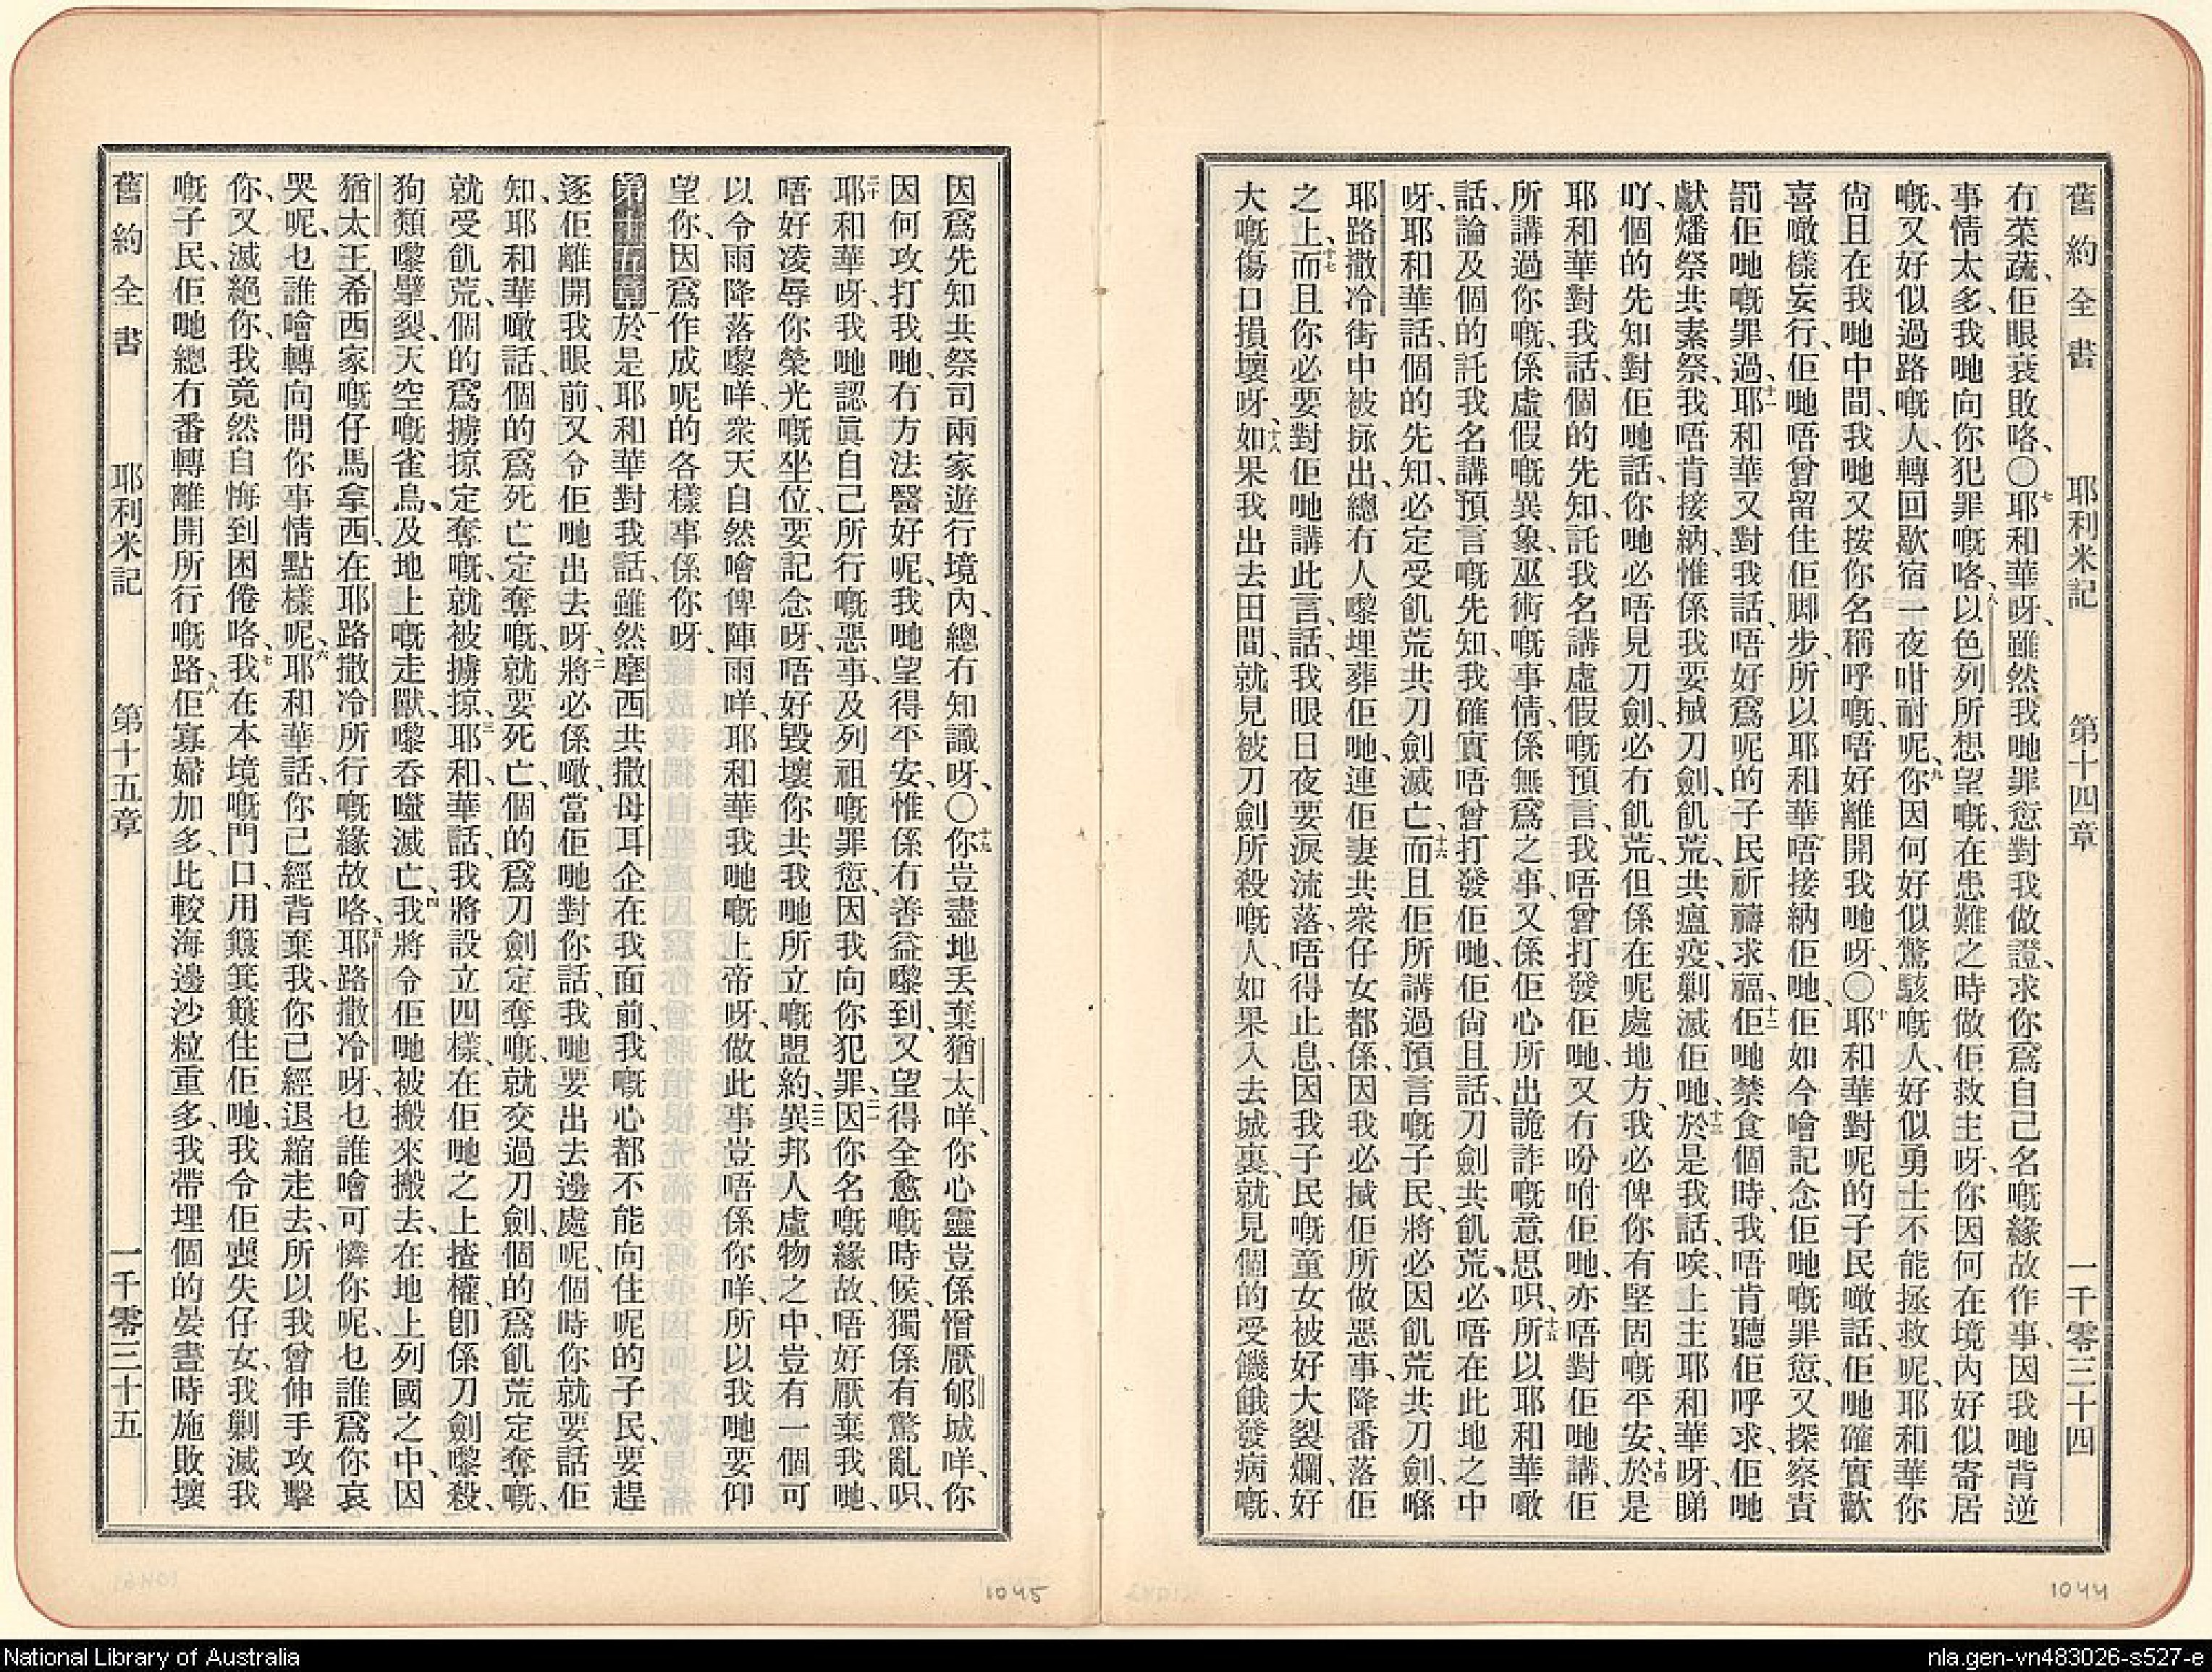 舊約全書 耶利米記 第十四章 一千零三十四
冇菜蔬、佢眼衰敗咯、〇七耶和華呀、雖然我哋罪愆對我做證、求你爲自己名嘅緣故作事、因我哋背逆
事情太多、我哋向你犯罪嘅咯、八以色列所想望嘅、在患難之時做佢救主呀、你因何在境內好似寄居
嘅、又好似過路嘅人、轉回歇宿一夜咁耐呢、九你因何好似驚駭嘅人、好似勇士不能拯救呢、耶和華你
尙且在我哋中間、我哋又按你名稱呼嘅、唔好離開我哋呀、〇十耶和華對呢的子民噉話、佢哋確實歡
喜噉樣妄行、佢哋唔曾留住佢脚步、所以耶和華唔接納佢哋、佢如今噲記念佢哋嘅罪愆、又探察責
罰佢哋嘅罪過、十一耶和華又對我話、唔好爲呢的子民祈禱求福、十二佢哋禁食個時、我唔肯聽佢呼求、佢哋
獻燔祭共素祭、我唔肯接納、惟係我要揻刀劍、飢荒、共瘟疫、剿滅佢哋、十三於是我話、唉、上主耶和華呀、睇
吖、個的先知對佢哋話、你哋必唔見刀劍、必冇飢荒、但係在呢處地方、我必俾你有堅固嘅平安、十四於是
耶和華對我話、個的先知、託我名講虛假嘅預言、我唔曾打發佢哋、又冇吩咐佢哋、亦唔對佢哋講、佢
所講過你嘅、係虛假嘅異象、巫術嘅事情、係無爲之事、又係佢心所出詭詐嘅意思呮、十五所以耶和華噉
話、論及個的託我名講預言嘅先知、我確實唔曾打發佢哋、佢尙且話、刀劍共飢荒、必唔在此地之中
呀、耶和華話、個的先知、必定受飢荒共刀劍滅亡、十六而且佢所講過預言嘅子民、將必因飢荒共刀劍、喺
耶路撒冷街中被𢱕出、總冇人嚟埋葬佢哋、連佢妻共衆仔女都係、因我必揻佢所做惡事、降番落佢
之上、十七而且你必要對佢哋講此言、話、我眼日夜要淚流落、唔得止息、因我子民嘅童女被好大裂爛、好
大嘅傷口損壞呀、十八如果我出去田間、就見被刀劍所殺嘅人、如果入去城裏、就見個的受饑餓發病嘅、
1044
因爲先知共祭司兩家遊行境內、總冇知識呀、〇十九你豈盡地丟棄猶太咩、你心靈豈係憎厭郇城咩、你
因何攻打我哋、冇方法醫好呢、我哋望得平安、惟係冇善益嚟到、又望得全愈嘅時候、獨係有驚亂呮、
二十耶和華呀、我哋認眞自己所行嘅惡事、及列祖嘅罪愆、因我向你犯罪、二一因你名嘅緣故、唔好厭棄我哋、
唔好凌辱你榮光嘅坐位、要記念呀、唔好毀壞你共我哋所立嘅盟約、二二異邦人虛物之中、豈有一個可
以令雨降落嚟咩、衆天自然噲俾陣雨咩、耶和華我哋嘅上帝呀、做此事豈唔係你咩、所以我哋要仰
望你、因爲作成呢的各樣事係你呀、
第十五章 一於是耶和華對我話、雖然摩西共撒母耳企在我面前、我嘅心都不能向住呢的子民、要趕
逐佢離開我眼前、又令佢哋出去呀、二將必係噉、當佢哋對你話、我哋要出去邊處呢、個時你就要話佢
知、耶和華噉話、個的爲死亡定奪嘅、就要死亡、個的爲刀劍定奪嘅、就交過刀劍、個的爲飢荒定奪嘅、
就受飢荒、個的爲擄掠定奪嘅、就被擄掠、三耶和華話、我將設立四樣、在佢哋之上揸權、卽係刀劍嚟殺、
狗類嚟擘裂、天空嘅雀鳥、及地上嘅走獸、嚟吞噬滅亡、四我將令佢哋被搬來搬去、在地上列國之中、因
猶太王希西家嘅仔馬拿西、在耶路撒冷所行嘅緣故咯、五耶路撒冷呀、乜誰噲可憐你呢、乜誰爲你哀
哭呢、乜誰噲轉向問你事情點樣呢、六耶和華話、你已經背棄我、你已經退縮走去、所以我曾伸手攻擊
你、又滅絕你、我竟然自悔到困倦咯、七我在本境嘅門口、用簸箕簸住佢哋、我令佢喪失仔女、我剿滅我
嘅子民、佢哋總冇番轉離開所行嘅路、八佢寡婦加多、比較海邊沙粒重多、我帶埋個的晏晝時施敗壞
舊約全書 耶利米記 第十五章 一千零三十五
1045
National Library of Australia
nla.gen-vn483026-s527-e